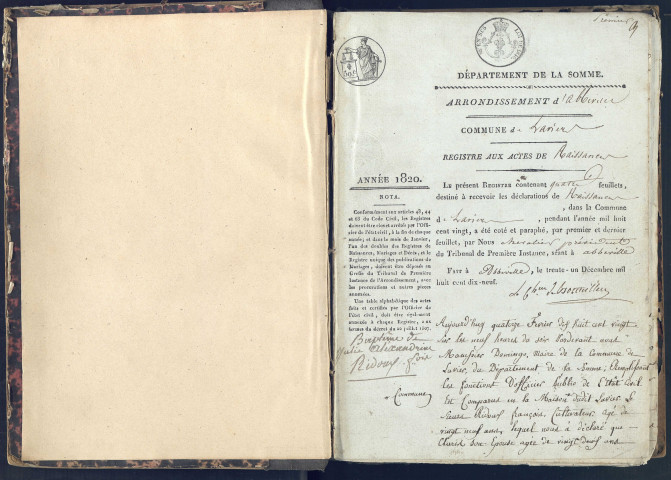 Premier
DÉPARTEMENT DE LA SOMME.
ARRONDISSEMENT d'abbeville
COMMUNE de Lavier
REGISTRE AUX ACTES DE Naissances
ANNÉE 1820.
NOTA.
Conformément aux articles 43, 44
et 63 du Code Civil, les Registres
doivent être clos et arrêtés par l'Offi-
cier de l'état civil, à la fin de chaque
année; et dans le mois de Janvier,
l'un des doubles des Registres de
Naissances, Mariages et Décès, et le
Registre unique des publications de
Mariages, doivent être déposés au
Greffe du Tribunal de Première
Instance de l'Arrondissement, avec
les procurations et autres pièces
annexées.
Une table alphabétique des actes
faits et certifiés par l'Officier de
l'état civil, doit être également
annexée à chaque Registre, aux
termes du décret du 20 juillet 1807.
Le présent REGISTRE contenant quatre feuillets,
destiné à recevoir les déclarations de Naissances
, dans la Commune
de Lavier , pendant l'année mil huit
cent vingt, a été coté et paraphé, par premier et dernier
feuillet, par Nous chevalier président
du Tribunal de Première Instance, séant à abbeville
FAIT à Abbeville, le trente-un Décembre mil
huit cent dix-neuf.
alexandrine
Ridoux
Commune
Aujourd'huy quatorze fevrier dix huit cent vingt
sur les neuf heures du soir pardevant nous
Domingo, maire de la Commune de
Lavier, du Département de la Somme, Remplissant
les fonctions D'officier public de l'Etat Civil
Est Comparu en la Maison dudit Lavier le
Sieur Ridoux françois, Cultivateur agé de
vingt neuf ans, lequel nous à déclaré que
son Epouse agée de vingt deux ans